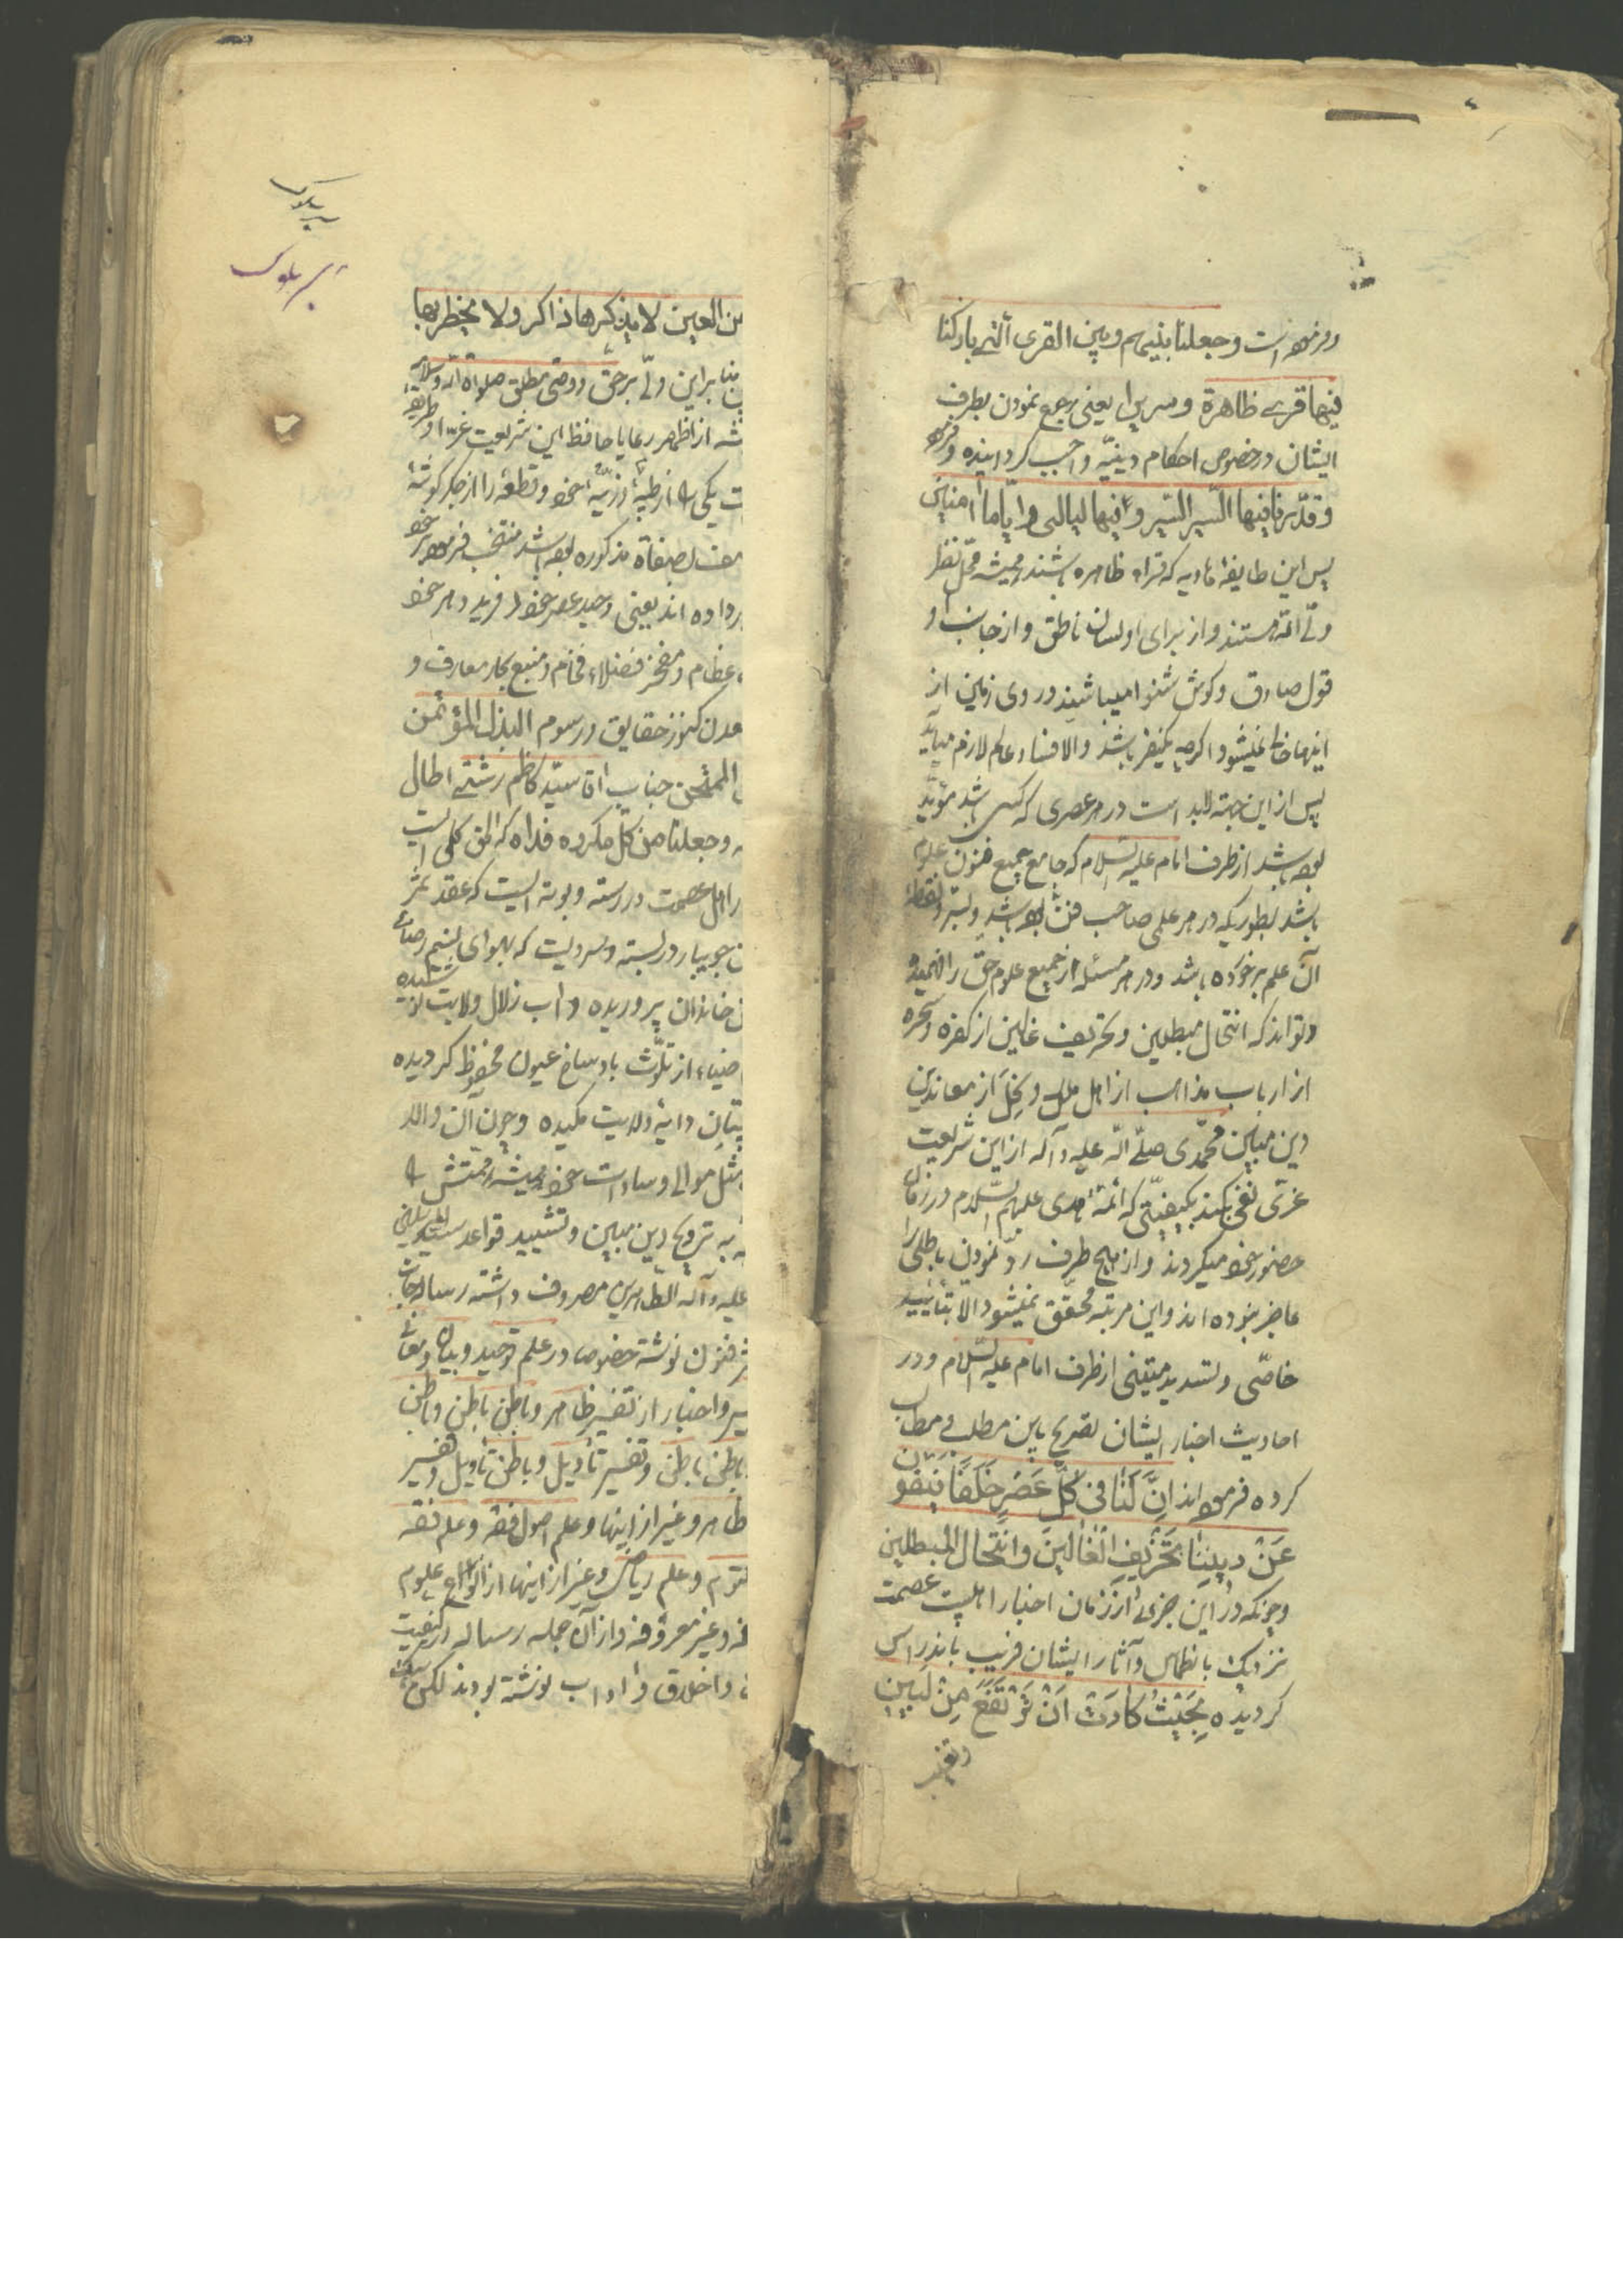 و فرموده است وجعلنا بینهم وبین القری التی بارکنا
فیها قری ظاهرة و سیر را یعنی رجوع نمودن بطرف
ایشان در خصوص احکام دینیّه واجب کردانیده و فرموده
وقدّرنا فیها السّیر سیروا فیها لیالی وایّاما آمنین
پس این طایفهٔ هادیه که قراء ظاهره باشند همیشه محل نظر
ولّی الله هستند و از برای او لسان ناطق و از جانب او
قول صادق و کوش شنوا میباشند و روی زمین از
اینها خالی نمیشود اکرچه یکنفر باشد والا فساد عالم لازم میآید
پس از این جهة لابد است در هر عصری که کسی باشد مؤیّد
بوده باشد از طرف امام علیه السّلام که جامع جمیع فنون علوم
باشد بطوریکه در هر علمی صاحب فنّ بوده باشد و بسرّ و نقطهٔ
آن علم برخورده باشد و در هر مسئلهٔ از جمیع علوم حقّ را فهمیده
و تواند که انتحال مبطلین و تحریف غالین از کفره و سحره
از ارباب مذاهب از اهل ملل و نحل از معاندین
دین مبین محمّدی صلّی الله علیه و آله از این شریعت
غرّی نفی بکند بکیفیّتی که ائمّه هدی علیهم السّلام در زمان
حضور خود میکردند و از هیچ طرف ردّ نمودن باطلی را
عاجز نبوده اند و این مرتبه محقّق نمیشود الّا بتائیید
خاصّی و تسدید متیقنی از طرف امام علیه السّلام و در
احادیث اخبار ایشان تصریح باین مطلب و مطالب
کرده فرموده اند انّ لنا فی کلّ عصر خلفا ینفون
عن دیننا تحریف الغالین وانتحال المبطلین
و چونکه در این جزء از زمان اخبار اهلبیت عصمت
نزدیک بانطماس و آثار ایشان قریب باندراس
کردیده بحیث کادت ان ترتفع من البین
من العین لا یذکرها ذاکر ولا یخطر بها
بنا براین ولّی برحق و وصی مطلق صلواة الله وسلامه
از اظهر رعایا حافظ این شریعت غرّا و طریقه
یکی از طیّبه ذرّیه خود و قطعهٔ را از جکر کوشهٔ
بصفاة مذکوره بوده باشد منتخب فرموده
داده اند یعنی وحید عصر خود و فرید دهر خود
عظام و مفخر فضلاء فخام و منبع بحار معارف و
معدن کنوز حقایق و رسوم البذل المؤتمن
الممتحن جناب آقا سیّد کاظم رشتی اطال
وجعلنا من کلّ مکروه فداه که الحق کلی است
اهل عصمت در رسته و بوته ایست که عقد ثمر
جویبار در بسته و سرویست که بهوای نسیم رضای
خاندان پروریده و آب زلال ولایت نوشیده
ضیاء از تلوّث باوساخ عیون محفوظ کردیده
پستان دایهٔ ولایت مکیده و چون آن والد
مثل موالی و سادات خود همیشه همّتش را
به ترویج دین مبین و تشیید قواعد سید المرسلین
علیه وآله الطّاهرین مصروف داشته رسالجات
فنون نوشته خصوصا در علم توحید و بیان و معانی
و اخبار از تفسیر ظاهر و باطن باطن و باطن
باطن باطن و تفسیر تأویل و باطن تأویل و تفسیر
ظاهر و غیر از اینها و علم اصول فقه و علم فقه
و علم ریاض و غیر از اینها از انواع علوم
و غیر معروفه و از آن جمله رساله در کیفیت
و اخلاق و آداب نوشته بودند لکن